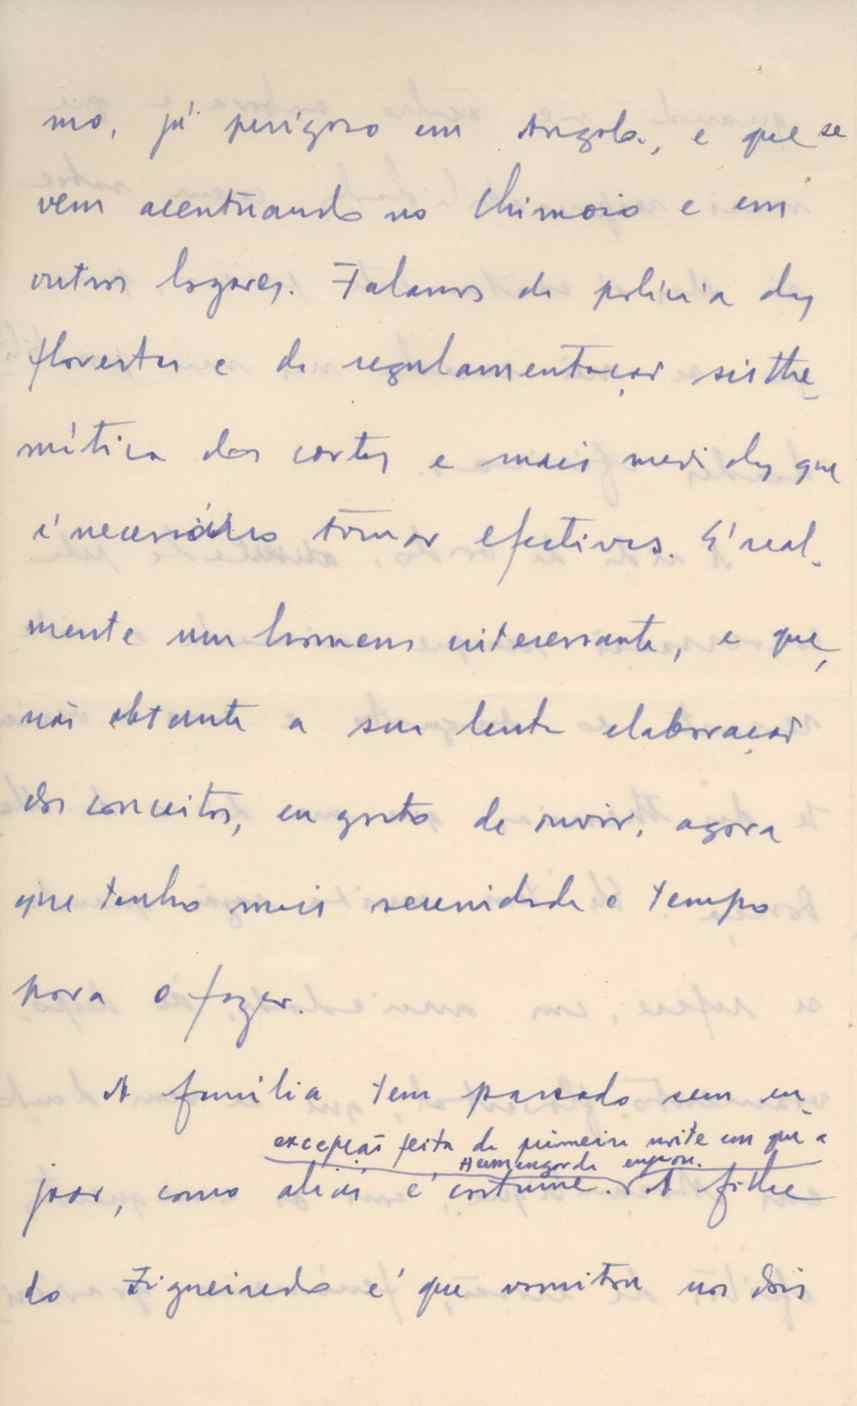 mo, já perigoso em Angola, e que se
vem acentuando no Chimoio e em
outros logares. Falamos de policia das
florestas e de regulamentação sisthe-
mática dos cortes e mais medidas que
é necessário tornar efectivas. É real-
mente um homem interessante, e que,
não obstante a sua lenta elaboração
dos conceitos, eu gosto de ouvir, agora
que tenho mais serenidade e tempo
para o fazer.
A família tem passado sem en-
excepção feita da primeira noite em que a
enjoou.
joar, como aliás é costume. A filha
do Figueiredo é que vomitou nos dois